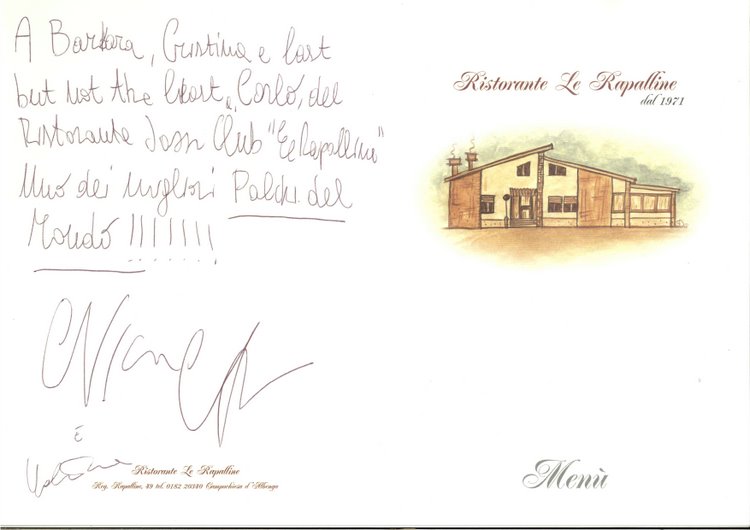 A Barbara, Cristina e last
but not the least, Carlo, del
Ristorante Jazz Club "Le Rapalline"
Uno dei migliori Palchi del
Mondo !!!!!!!
E
Ristorante Le Rapalline
Reg. Rapalline, 49 tel. 0182 20340 Campochiesa d'Albenga
Ristorante Le Rapalline
dal 1971
Menù